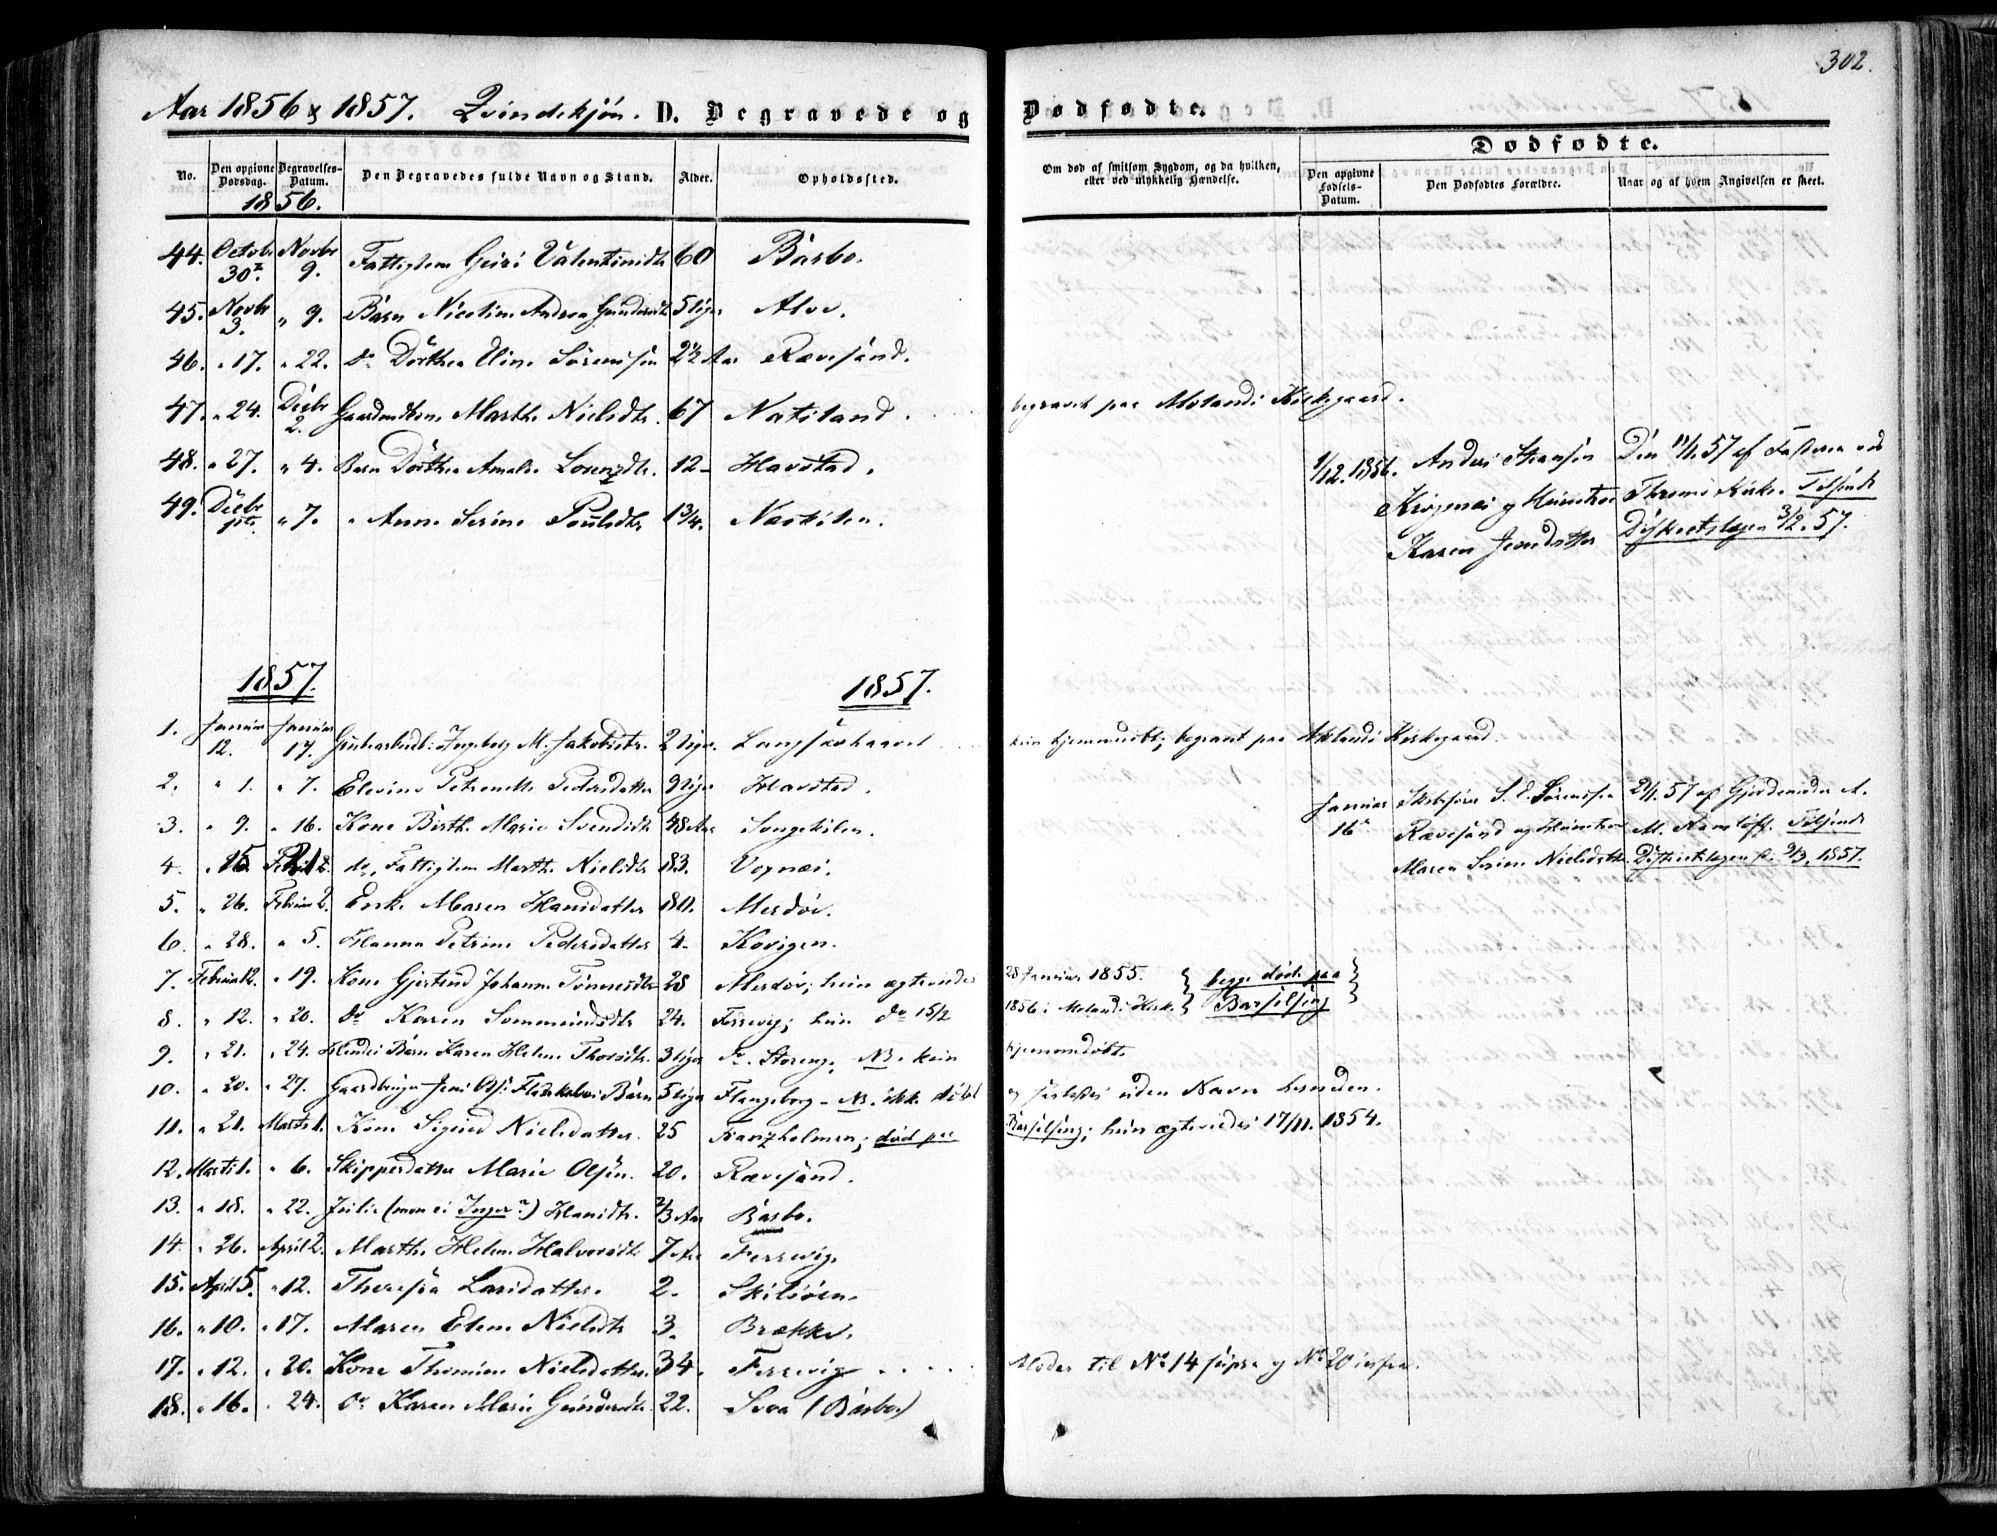 302.
Aar 1856 & 1857. Qvindekjön. D. Begravede og Dødfødte.
Dødfødte.
No. Den opgivne Dødsdag. Begravelses-Datum. Den Begravedes fulde Navn og Stand. Alder. Opholdssted. Om død af smitsom Sygdom, og da hvilken, eller ved ulykkelig Hændelse. Den opgivne Fødsels-Datum. Den Dødfødtes Forældre. Naar og af hvem Angivelsen er skeet.
1856.
44. Octobr 30te Novbr 9. Fattiglem Guri Valentinsdtr 60 Barbo.
45. Novbr 3. " 9. Barn Nicoline Andrea Gundersdtr 5 Uger Alve.
46. " 17. " 22. do Dorthea Eline Sörensen 2½ Aar Rævesand.
47. " 24. Decbr 2. Marthe Nielsdtr. 67 Natvland. begravet paa Molands Kirkegaard.
48. " 27. " 4. Barn Dorthea Amalie Lorenzdtr. 12 Havstad.
49. Decbr 1ste " 7. " Anne Serine Poulsdtr 1¾. Næskilen.
1/12. 1856. Anders Den 11/1. 57 af Fasteren ved
og Hustroe Thromö Kirke. Tilsendt
Karen Jensdatter Distriktslægen 3/2. 57.
1857. 1857.
1. Januar 12. Januar 17. Ingeborg M. Jakobsdtr. 2 Uger. Langsæhaavet kun hjemmedöbt; begravet paa Molands Kirkegaard.
2. " 1. " 7. Elevine Petrenelle Pedersdatter 9 Uger Havstad.
3. " 9. " 16. Kone Birthe Marie Svendsdtr 48 Aar Songekilen.
Januar 16de Skibsförer S. E. Sörensen 21/1. 57 af
Rævesand og Hustroe M. Tilsendt
Maren Serine Nielsdtr. Distriktslægen d. 9/3. 1857.
4. " 15 21 do, Fattiglem Marthe Nielsdtr 83. Vognæs.
5. " 26. Februar 2. Enke Maren Hansdatter 80. Merdöe.
6. " 28. " 5. Hanna Petrine Pedersdatter 4. Kovigen.
7. Februar 12. " 19. Kone Gjertrud Johanne Tönnesdtr 28 Merdöe; hun ægteviedes 28 Januar 1855. begge döde paa
8. " 12. " 20. do Karen Sommundsdtr 24. Færevig; hun do 15/2 1856 i Molands Kirke. Barselseng
9. " 21. " 24. Barn Karen Helene Thorsdtr. 3 Uger Storeng. NB. kun hjemmedöbt.
10. " 20. " 27. Gaardbruger Jens Barn 5 Uger Flangeborg - NB. ikke döbt og uden Navn
11. " 21. Marts 1. Kone Sigrid Nielsdatter. 25 Franzholmen; död paa Barselseng; hun ægteviedes 17/11. 1854.
12. Marts 1. " 6. Skippersdatter Marie Olsen. 20. Rævesand.
13. " 18. " 22. Julie (mon ei Inger?) Hansdtr. 2/3 Aar Barbo.
14. " 26. April 2. Marthe Helene Halvorsdtr 7 Aar Færevig.
15. April 5. " 12. Theresia Larsdatter. 2. Skilsöen.
16. " 10. " 17. Maren Elene Nielsdtr 3. Brække.
17. " 12. " 20. Kone Thomine Nielsdatter. 34. Færevig . . . . Moder til No 14 supra og No 20 infra.
18. " 16. " 24. do Karen Marie Gundersdtr. 22. Sova (Barbo)